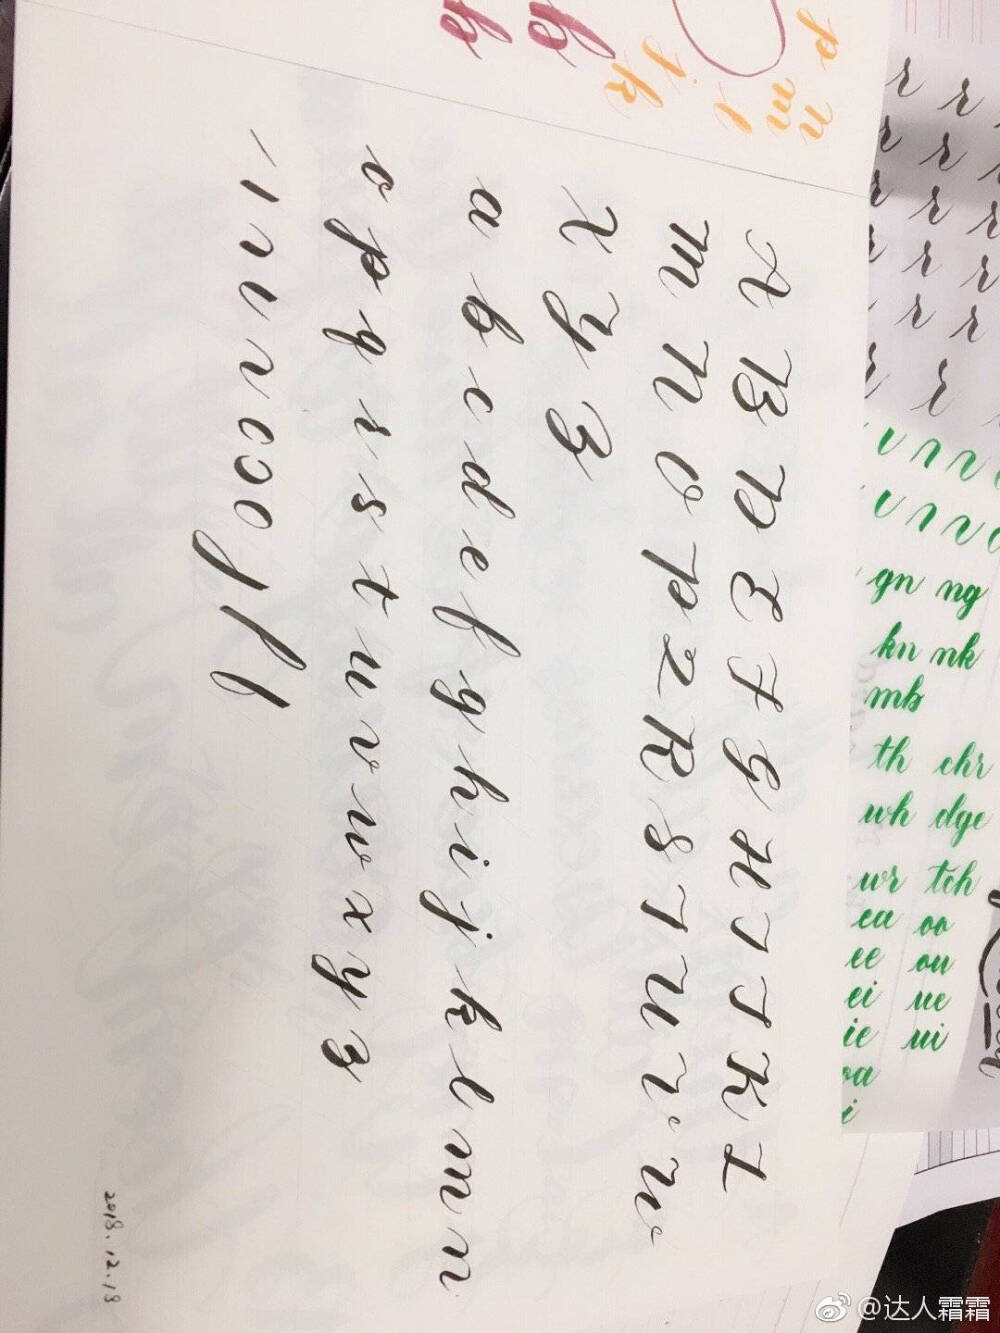 A B D E F G H I J K L
M N O P Q R S T U V W
X Y Z
a b c d e f g h i j k l m n
o p q r s t u v w x y z
2018.12.18
n
m
p
l
k
j
b
b
gn ng
kn nk
mb
th chr
wh dge
wr tch
ea oo
ee ou
ei ue
ie ui
oa
@达人霜霜